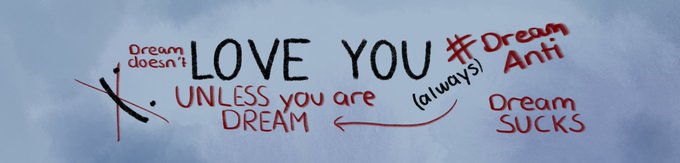 Dream
doesn't
LOVE YOU
#Dream
Anti
(always)
UNLESS you are
DREAM
Dream
SUCKS